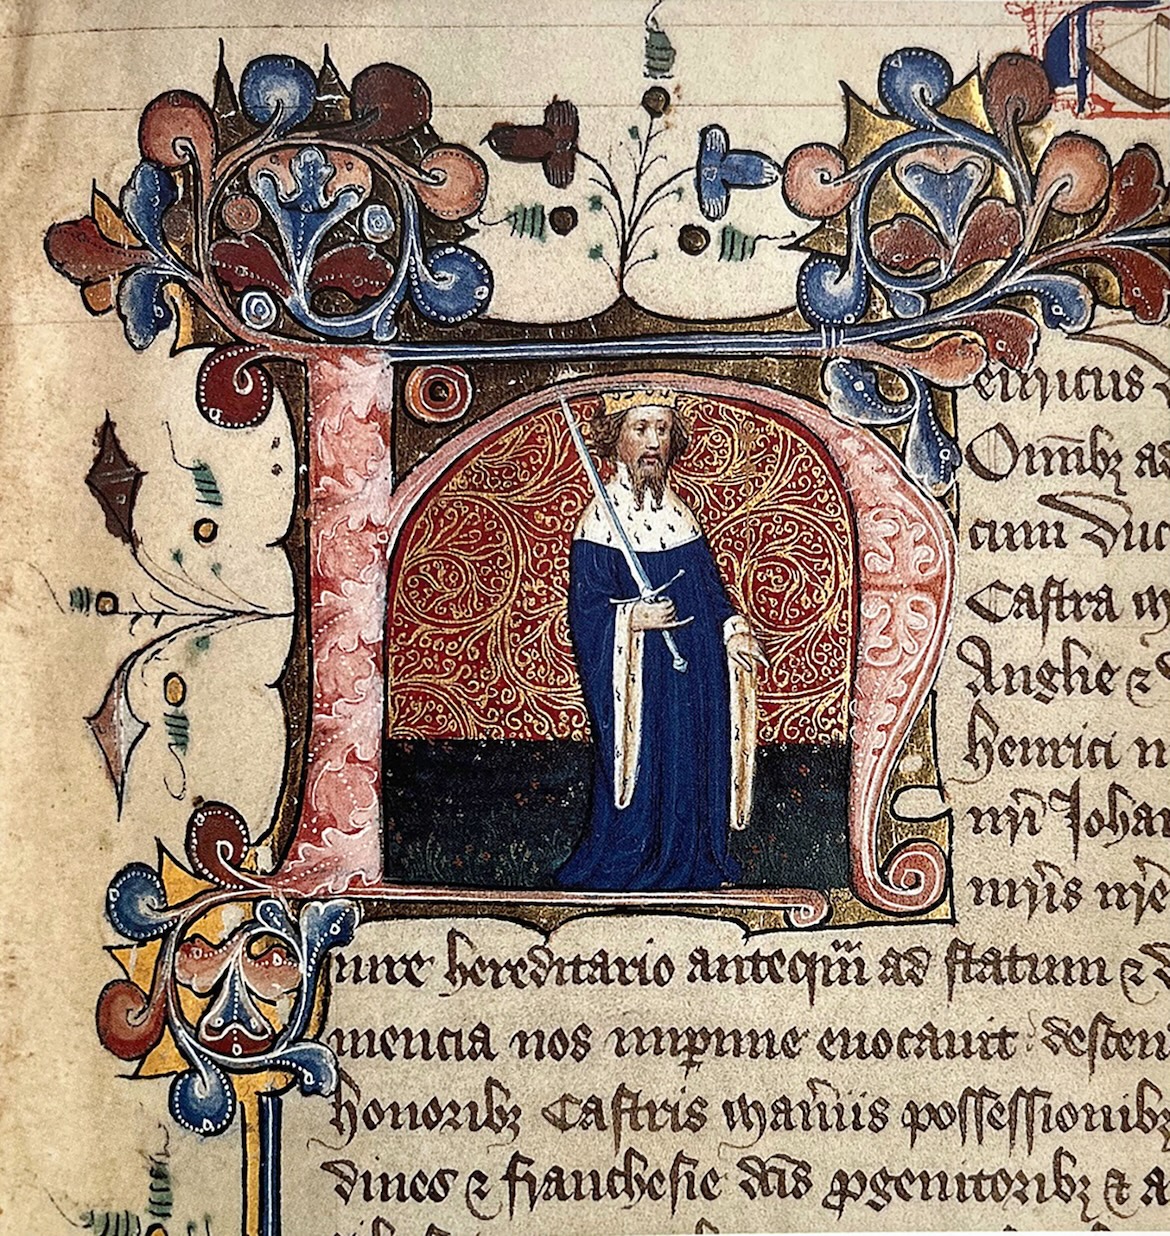 Henricus
Om̄ibꝫ ad
cum Duc
Castra m
Anglie ⁊ D
henrici n
nr̄i Johan
nr̄is nr̄e
iure hereditario anteq̄m ad statum ⁊ d
mencia nos inp̱inne euocauit descen
honoribꝫ Castris man̄iis possessionibꝫ
dines ⁊ franchesie dc̄is ꝓgenitoribꝫ ⁊ a